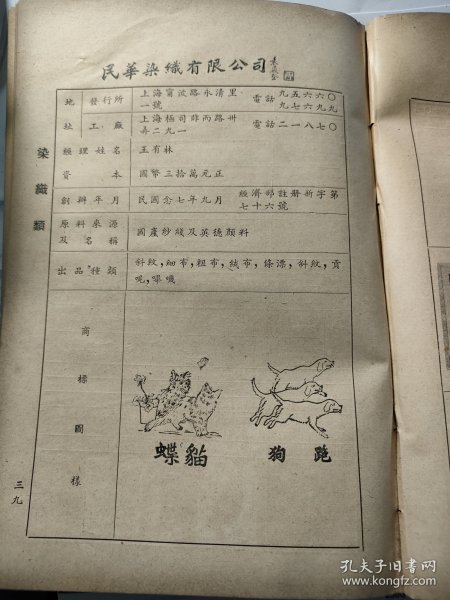 民華染織有限公司
地址 發行所 上海甯波路永清里一號 電話 九五六六〇 九七六九九
工廠 上海極司非而路卅弄二九一 電話二一八七〇
經理姓名 王有林
資本 國幣三拾萬元正
創辦年月 民國念七年九月 經濟部註册新字第七十六號
原料來源及名稱 國產紗綫及英德顏料
出品種類 斜紋,細布,粗布,絨布,條漂,斜紋,貢呢,嗶嘰
商標圖樣
蝶貓 狗跑
染織類
三九
孔夫子旧书网
www.kongfz.com